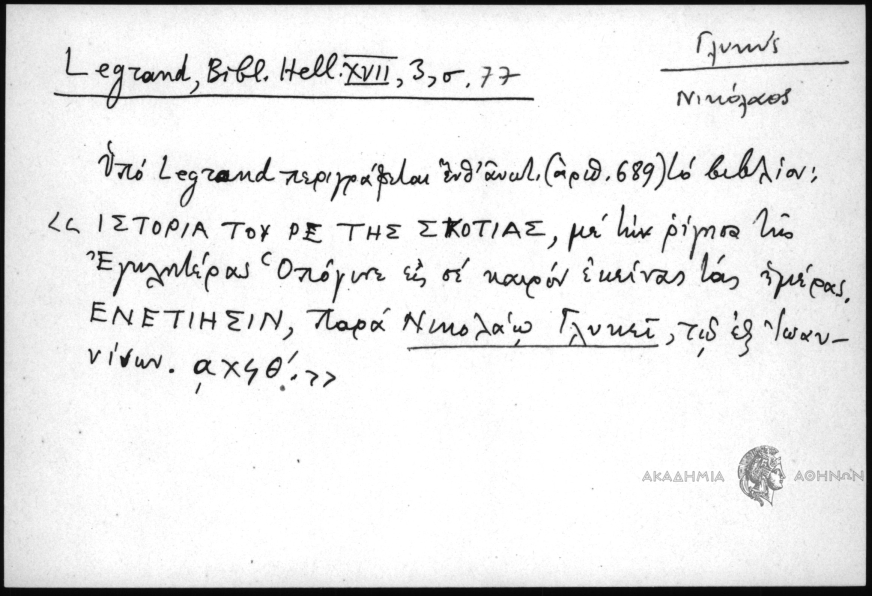 Γλυκύς
Νικόλαος
Legrand, Bibl. Hell. XVII, 3, σ. 77
Ὑπό Legrand περιγράφεται ἔνθ' ἀνωτ. (ἀριθ. 689) τό βιβλίον:
<< ΙΣΤΟΡΙΑ ΤΟΥ ΡΕ ΤΗΣ ΣΚΟΤΙΑΣ, μέ τήν ρίγησα τῆς
Ἐγκλητέρας Ὁπόγινε εἰς σέ καιρόν ἐκείνας τάς ἡμέρας.
ΕΝΕΤΙΗΣΙΝ, παρά Νικολάῳ Γλυκεῖ, τῷ ἐξ Ἰωαν-
νίνων. ͵αχϟθ΄. >>
ΑΚΑΔΗΜΙΑ ΑΘΗΝΩΝ